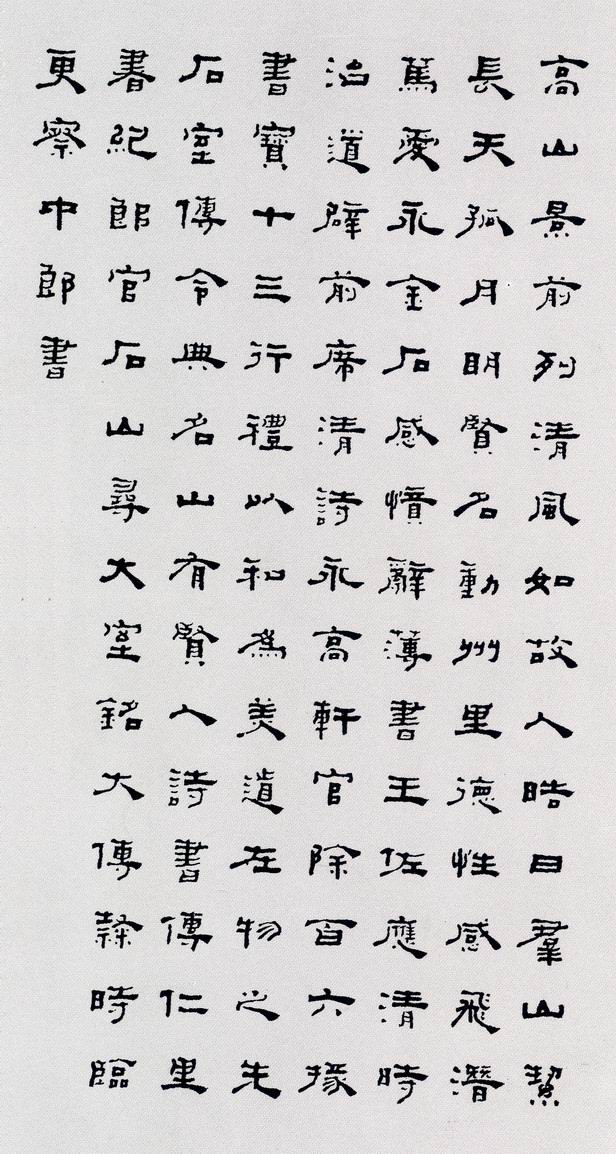 高山景前列清風如故人晧日羣山絜
長天孤月明賢名動州里德性感飛潛
篤愛永金石感憤辭薄書王佐應清時
治道辟前席清詩永高軒官除百六掾
書寶十三行禮以和為美道在物之先
石室傳令典名山有賢人詩書傳仁里
書紀郎官石山尋大室銘大傳隸時臨
更察中郎書